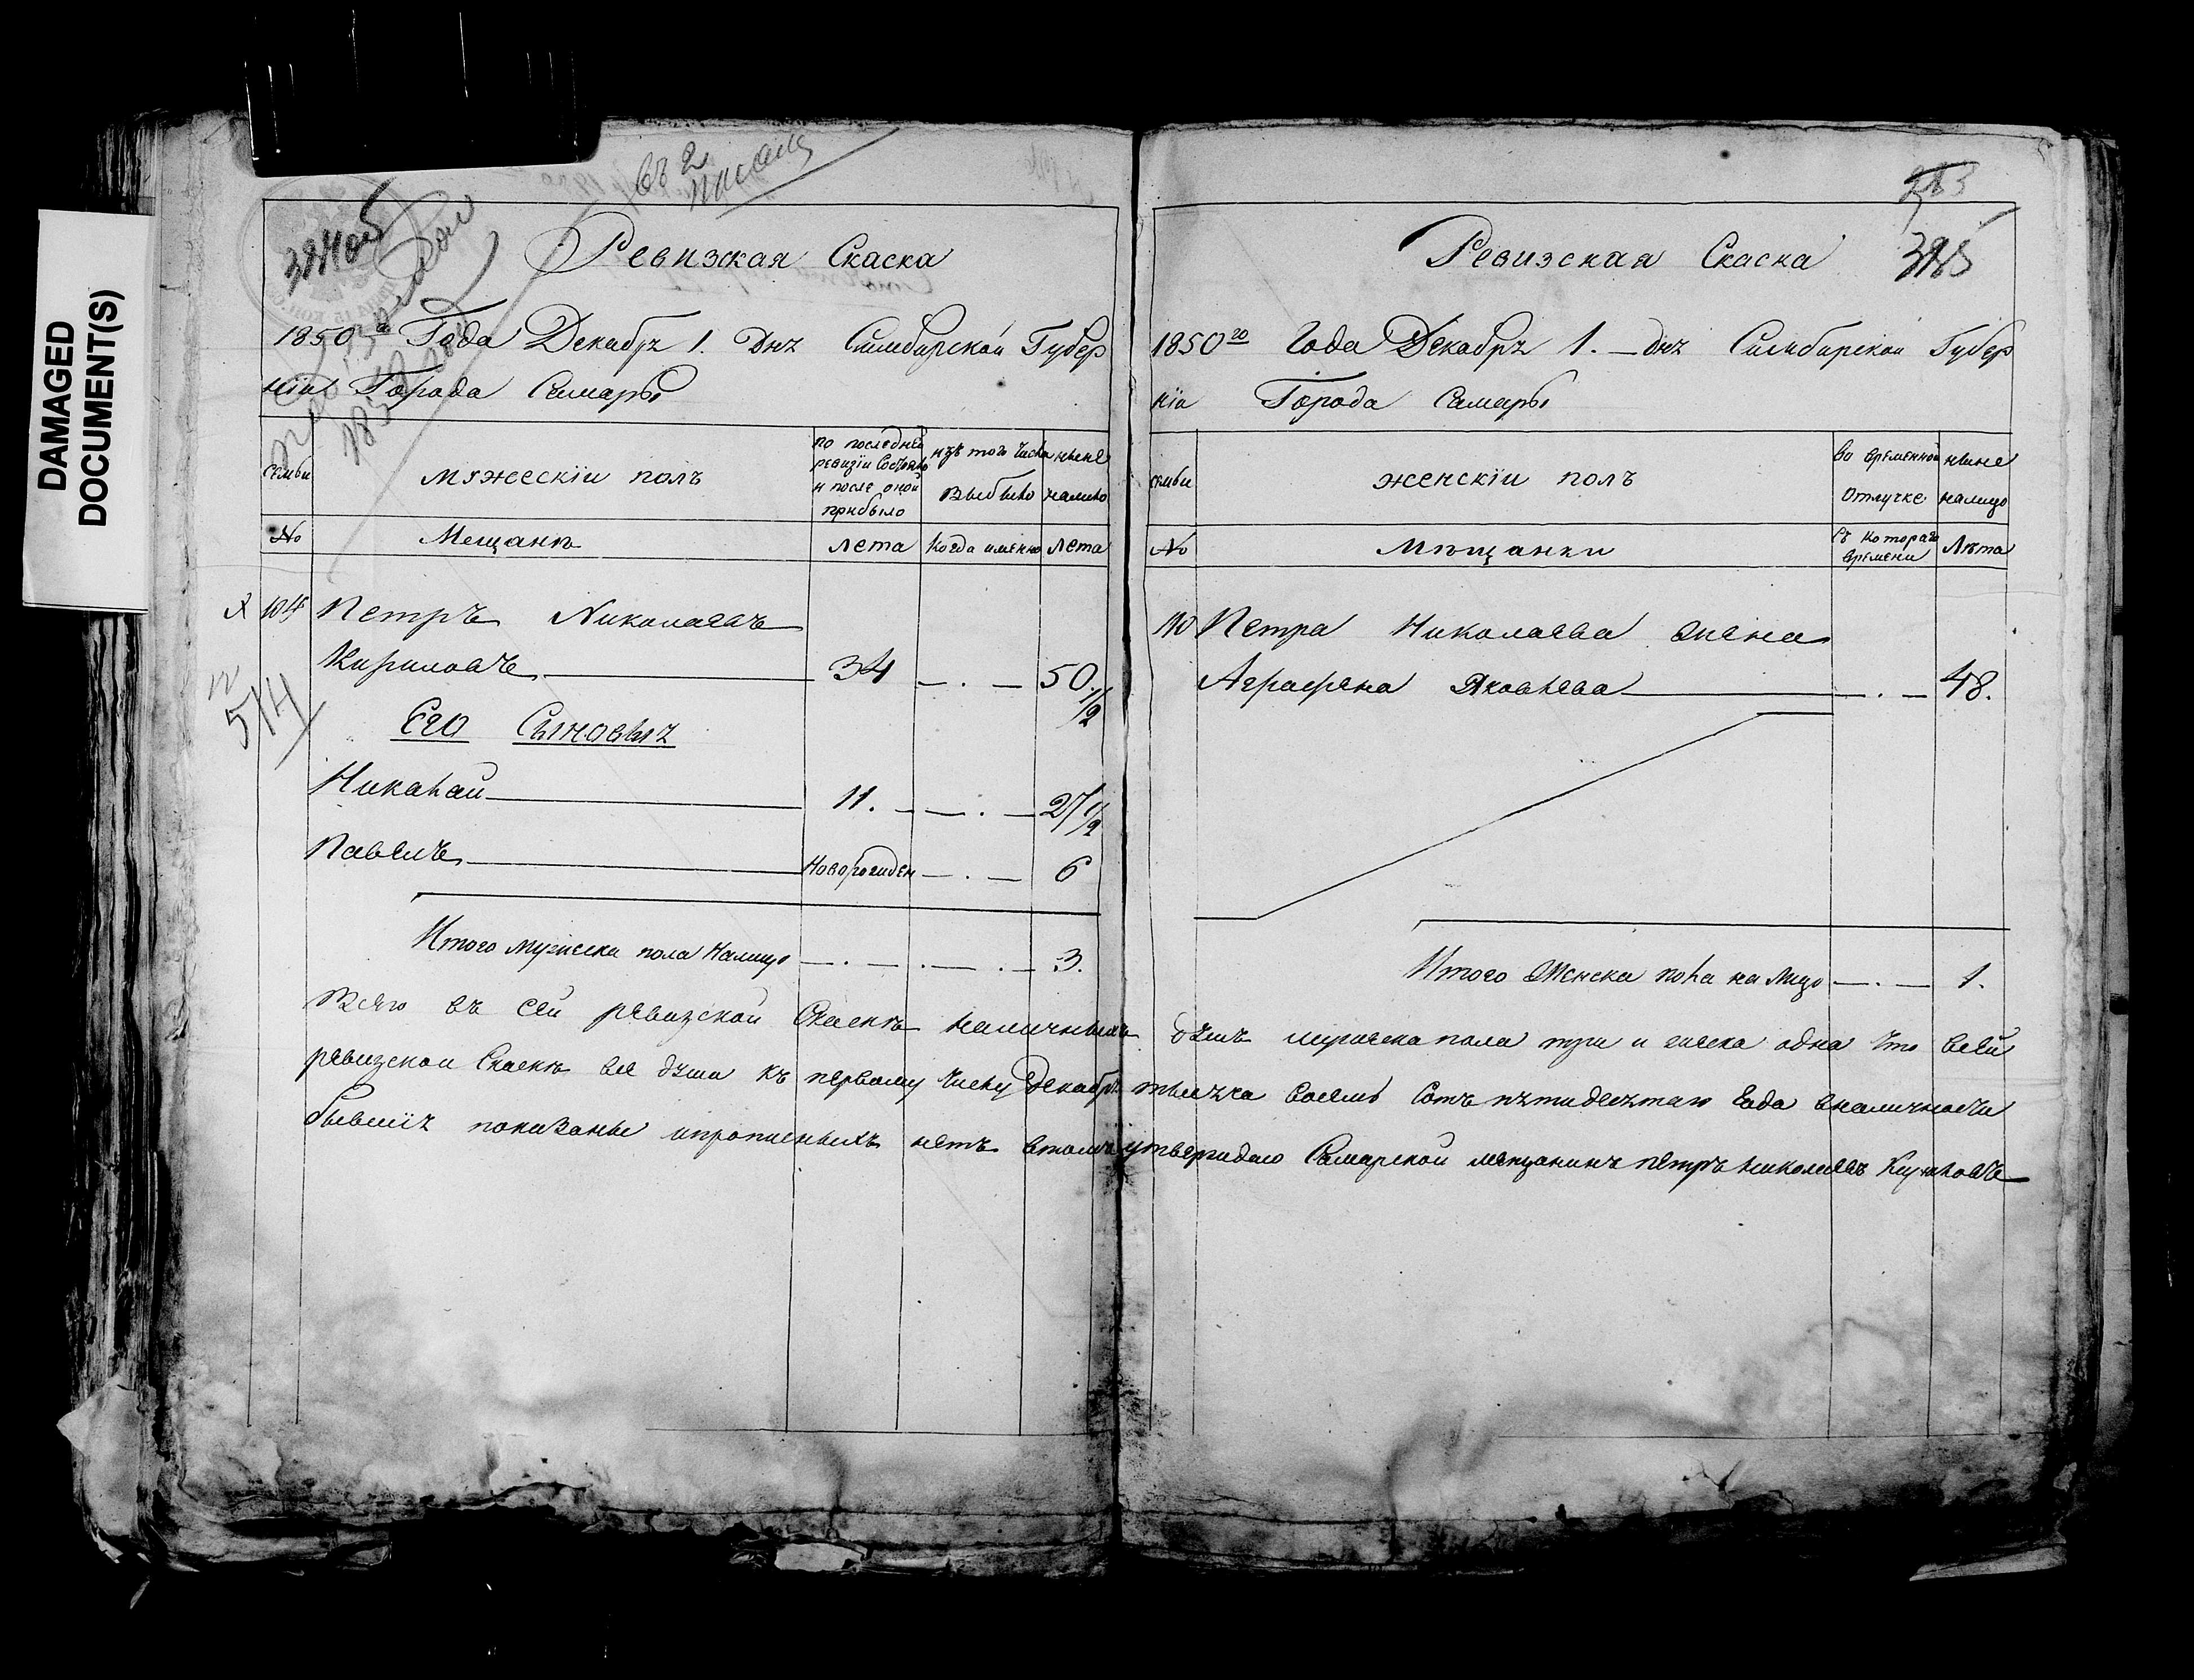 DAMAGED
DOCUMENT(S)
въ 2
Ревизская Скаска
1850го Года Декабрѧ 1. Днѧ Симбирской Губер
нїи Города Самары
семьи
мꙋжескїи полъ
по последней
ревизїи Состояло
и после оной
прибыло
изъ того Числа
выбыло
ныне
налицо
№
Мещанѣ
лета
Когда имянно
лета
104
Петръ Николаевъ
Кириловъ 34 50 1/2
514
Его Сыновьѧ
Никалай 11. 27 1/2
Павелъ Новорожден 6
Итого мужеска пола Налицо 3.
385
Ревизская Скаска
1850го Года Декабрѧ 1. днѧ Симбирской Губер
нїи Города Самары
семьи
женскїи полъ
во временной
отлучке
ныне
налицо
№
Мѣщанки
съ котораго
времени
Лѣта
Петра Николаева жена
Аграфена Яковлева 48.
Итого Женска пола на лицо 1.
Всего въ сей ревизской Скаскѣ наличныхъ дꙋшъ мужеска пола три и женска одна Что всей
ревизской Скаскѣ все дꙋши къ первому Числу Декабрѧ тысѧча восемь Сотъ пѧтидесѧтаго Года вналичности
бывшїѧ показаны ипрописныхъ нетъ втомъ утверждаю Самарской мещанинъ петръ николаевъ Кириловъ